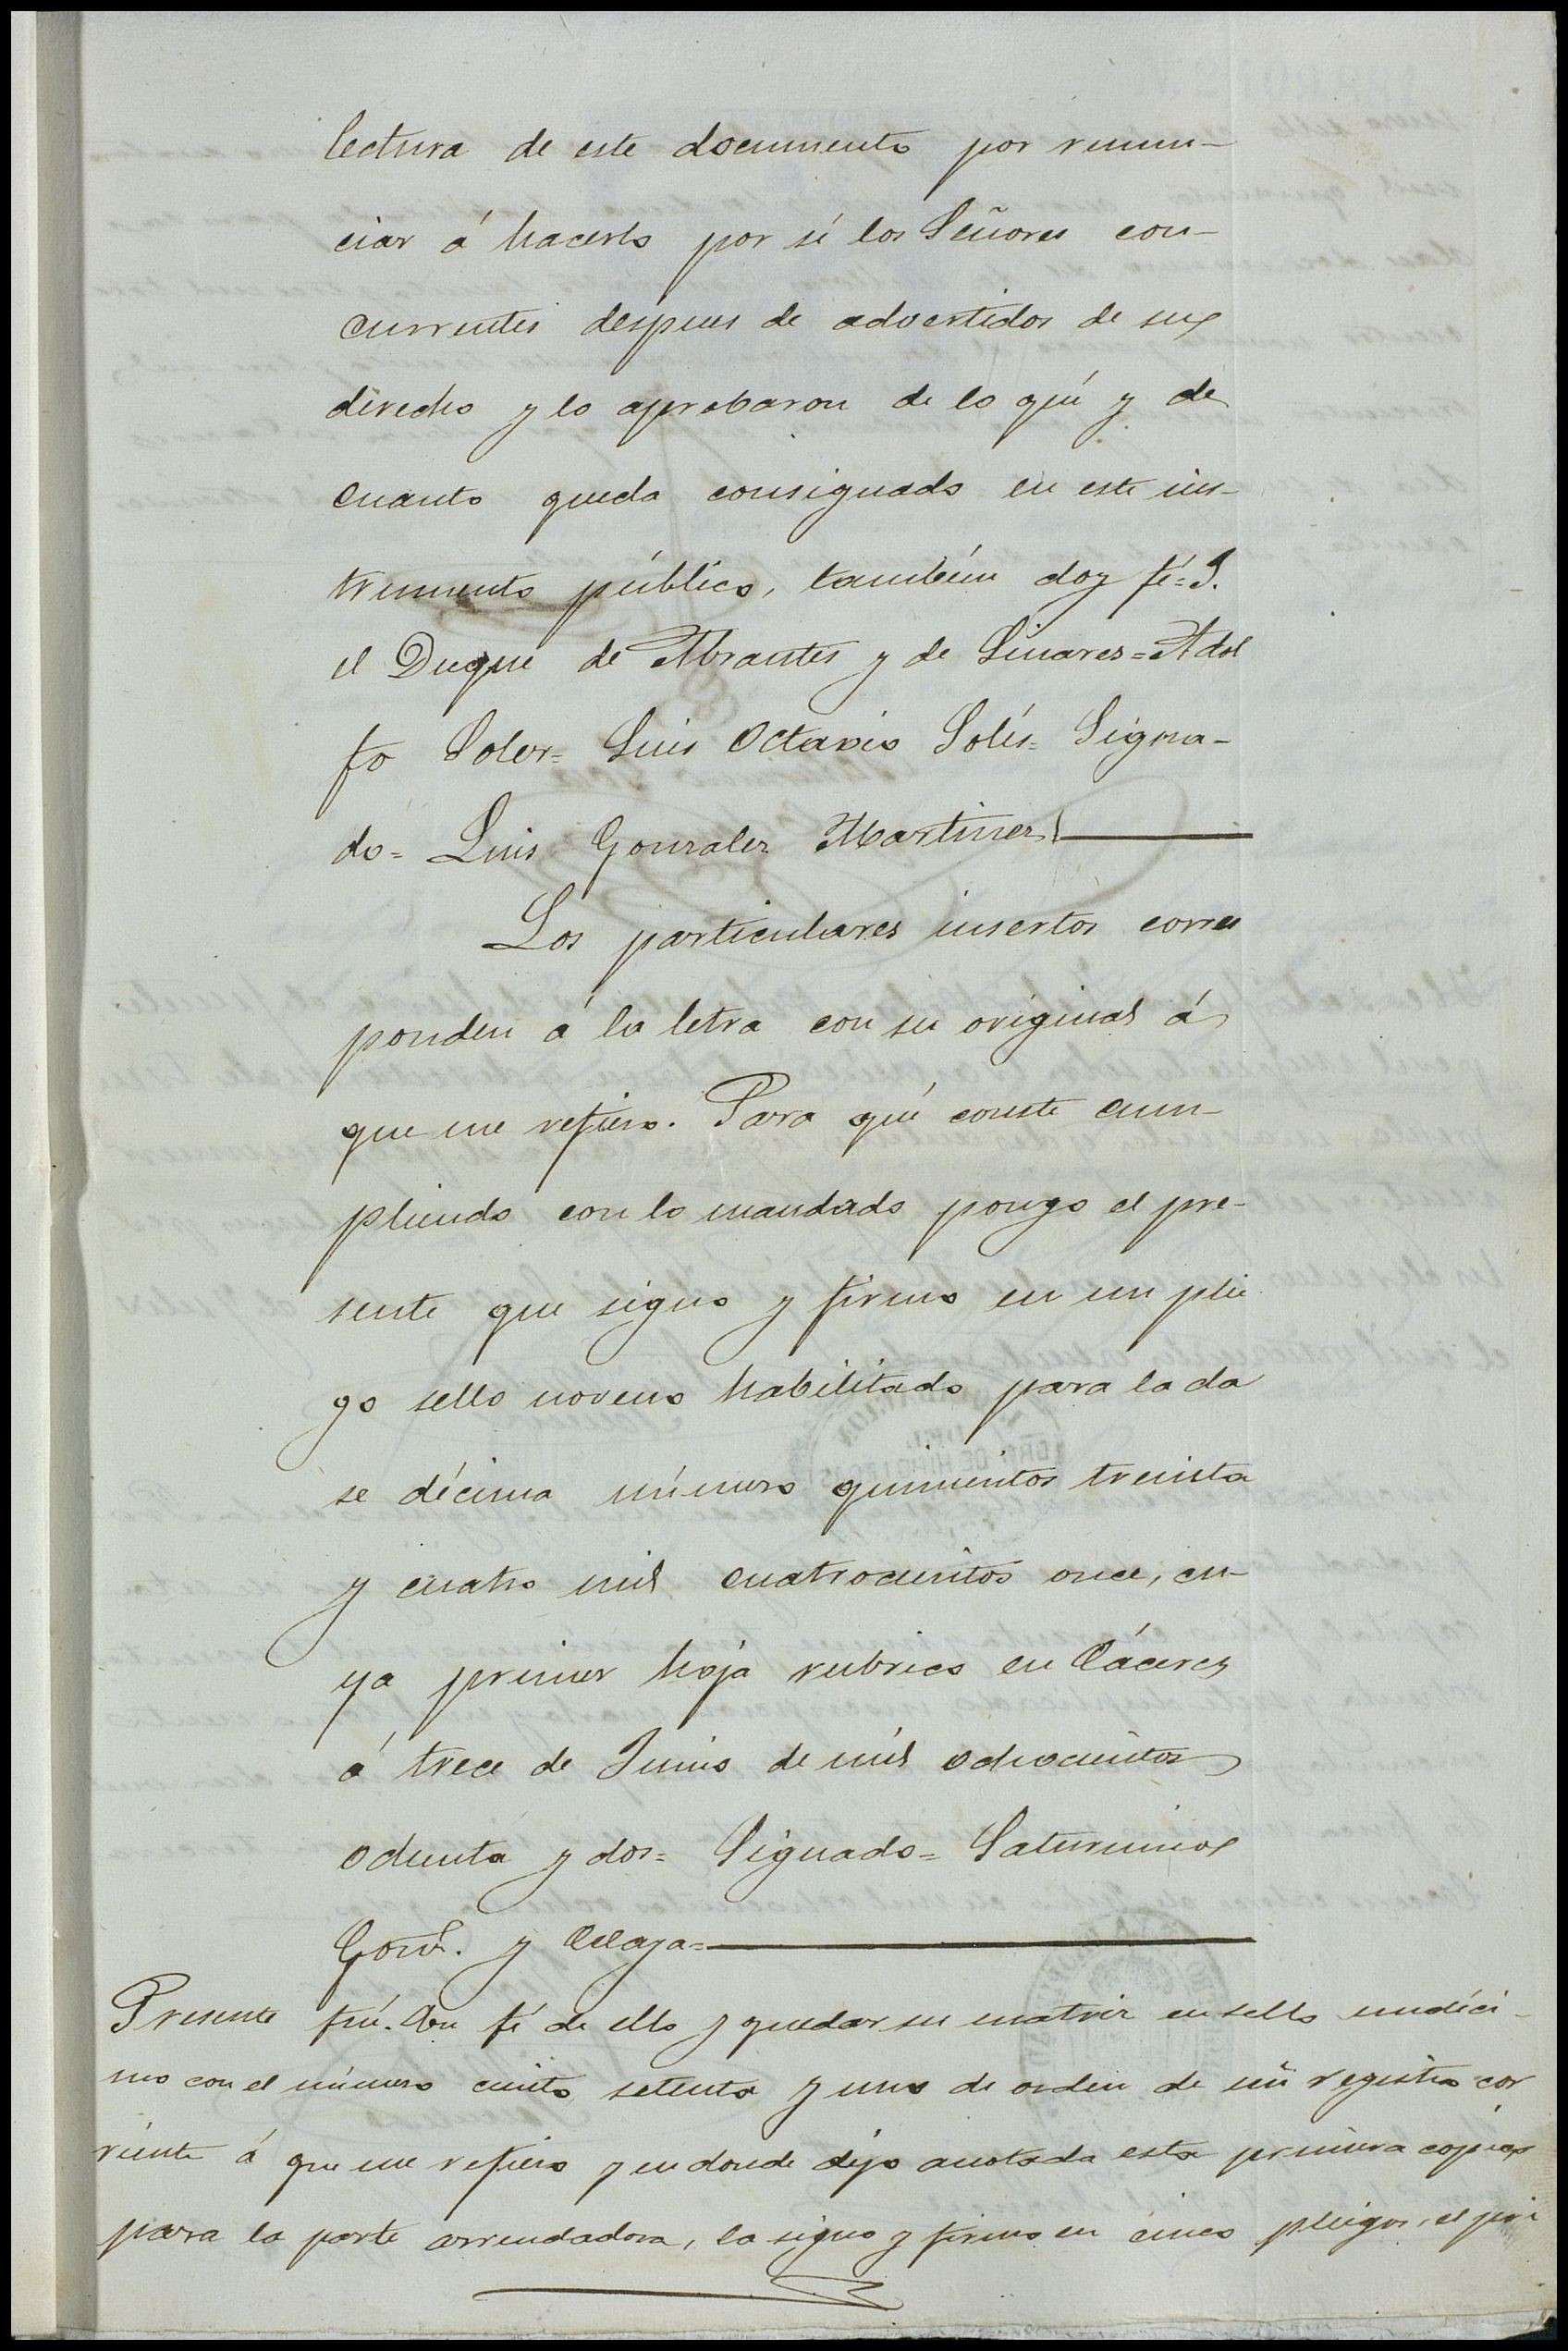 lectura de este documento por renun-
ciar á hacerlo por sí los Señores con-
currentes despues de advertidos de su
derecho y lo aprobaron de lo qué y de
cuanto queda consignado en este ins-
trumento público, también doy fé=
el Duque de Abrantes y de Linares=Adol
fo Soler= Luis Octavio Solís= Signa-
do= Luis Gonzalez Martinez
Los particulares insertos corres
ponden á la letra con su original á
que me refiero. Para qué conste cum-
pliendo con lo mandado pongo el pre-
sente que signo y firmo en un plie
go sello noveno habilitado para la cla
se décima número quinientos treinta
y cuatro mil cuatrocientos once, cu-
ya primer hoja rubrico en Cáceres
á trece de Junio de mil ochocientos
ochenta y dos= Signado= Saturnino
Gonz. y Celaya=
Presente fuí. En fé de ello y quedar su matriz en sello undéci-
mo con el número ciento setenta y uno de orden de mi registro cor
riente á que me refiero y en donde dejo anotada esta primera copia
para la parte arrendadora, la signo y firmo en cinco pliegos, el pri